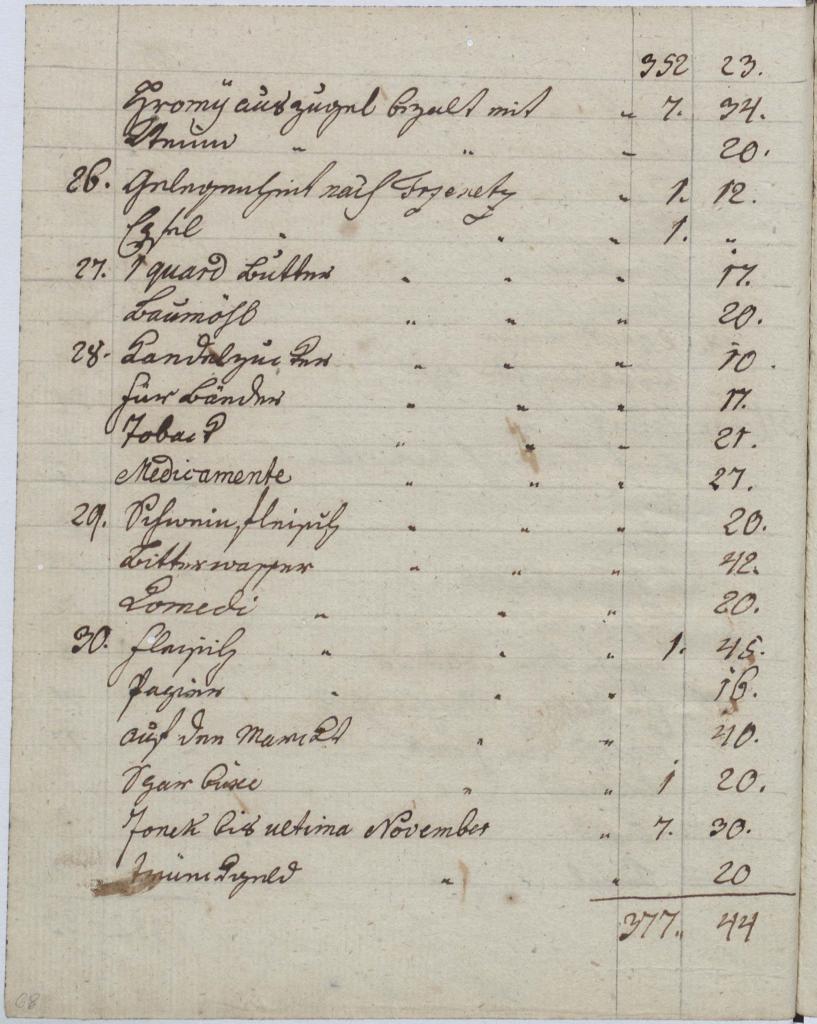 352 23.
Hromÿ auszugel bezalt mit „ 7. 34.
„ „ „ 20.
26. Gelegenheit nach Trzenetz „ 1. 12.
Essel „ „ „ 1. „
27. 1 quard Butter „ „ „ 17.
Baumöhl „ „ „ 20.
28. Kandelzucker „ „ „ 10.
für Bänder „ „ „ 17.
Toback „ „ „ 21.
Medicamente „ „ „ 27.
29. Schweinfleisch „ „ „ 20.
Bitterwasser „ „ „ 42.
Komedi „ „ „ 20.
30. fleisch „ „ „ 1. 45.
Papier „ „ „ 16.
auf den Marckt „ „ 40.
Spar bixe „ „ 1 20.
Jonek bis ultima November „ 7. 30.
„ „ 20
377. 44
68